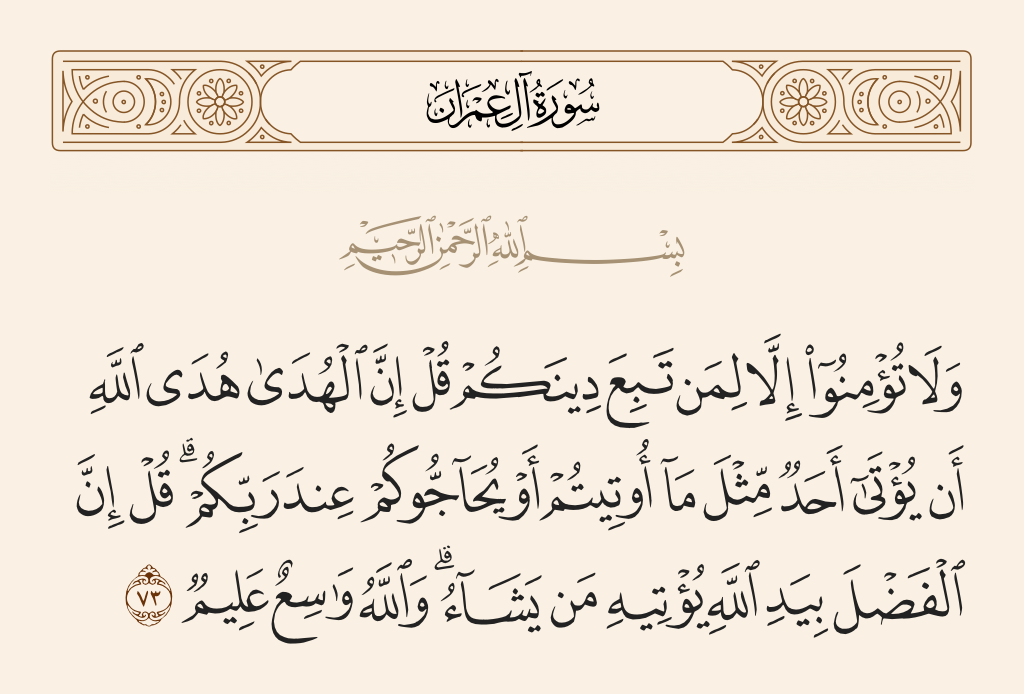 سُورَةُ آلِ عِمْرَان
بِسْمِ ٱللَّهِ ٱلرَّحْمَٰنِ ٱلرَّحِيمِ
وَلَا تُؤْمِنُوٓا۟ إِلَّا لِمَن تَبِعَ دِينَكُمْ قُلْ إِنَّ ٱلْهُدَىٰ هُدَى ٱللَّهِ
أَن يُؤْتَىٰٓ أَحَدٌ مِّثْلَ مَآ أُوتِيتُمْ أَوْ يُحَآجُّوكُمْ عِندَ رَبِّكُمْ ۗ قُلْ إِنَّ
ٱلْفَضْلَ بِيَدِ ٱللَّهِ يُؤْتِيهِ مَن يَشَآءُ ۗ وَٱللَّهُ وَٰسِعٌ عَلِيمٌ ٧٣